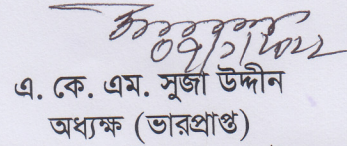 এ. কে. এম. সুজা উদ্দীন
অধ্যক্ষ (ভারপ্রাপ্ত)